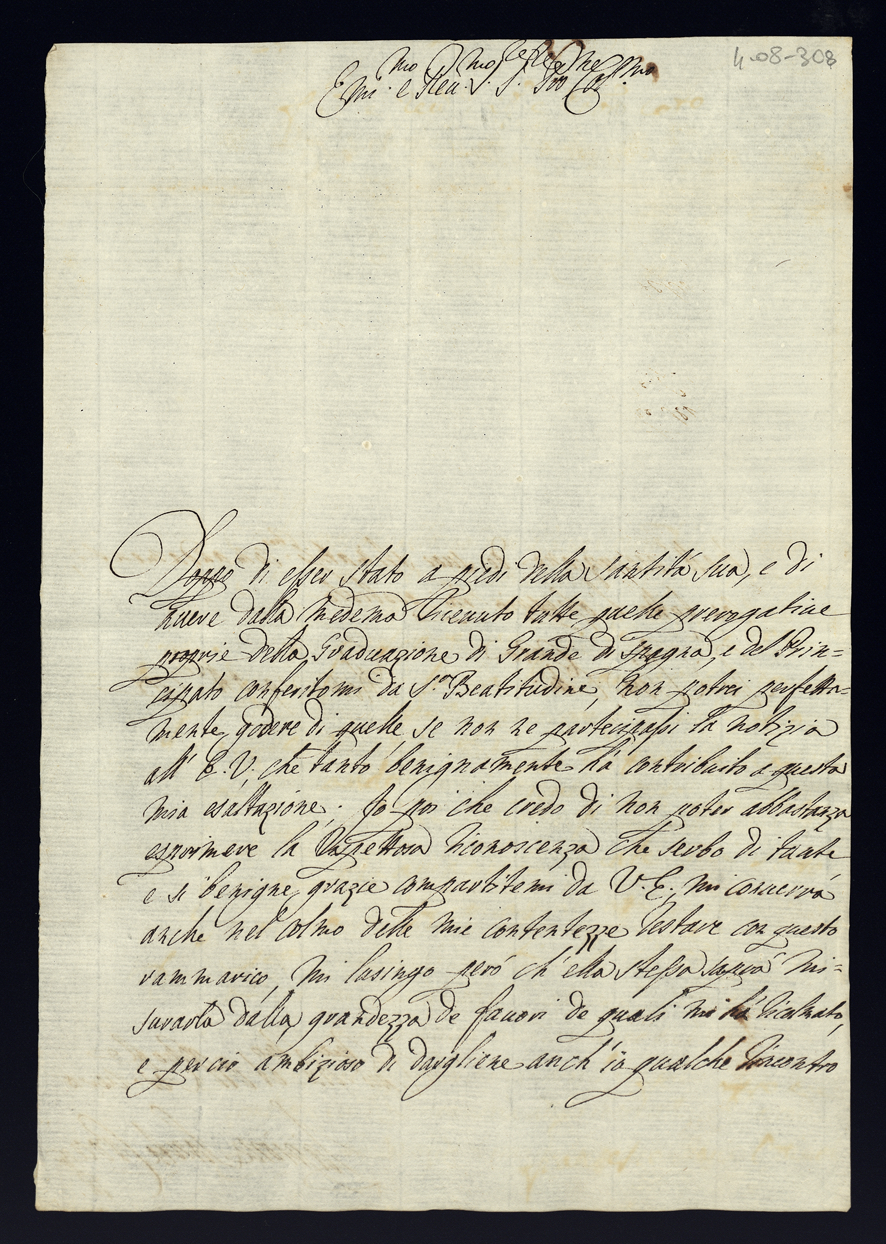 4-08-308
Em.mo e Rev.mo S.re S.re Pro.ne Col.mo
Doppo di esser stato a piedi della Santità sua, e di
havere dalla medema ricevuto tutte quelle prerogative
proprie della Graduazione di Grande di Spagna, e del Prin=
cipato conferitomi da S.a Beatitudine, non potrei perfetta=
mente godere di quelle se non ne partecipassi la notizia
all' E.V. che tanto benignamente hà contribuito a questa
mia esaltazione; Io poi che credo di non poter abbastanza
esprimere la rispettosa riconoscenza che serbo di tante
e si benigne grazie compartitemi da V.E., mi converrà
anche nel colmo delle mie contentezze restare con questo
rammarico, mi lusingo però ch'ella stessa saprà mi=
surarla dalla grandezza de favori de quali mi hà ricolmato,
e perciò ambizioso di dargliene anch'io qualche riscontro